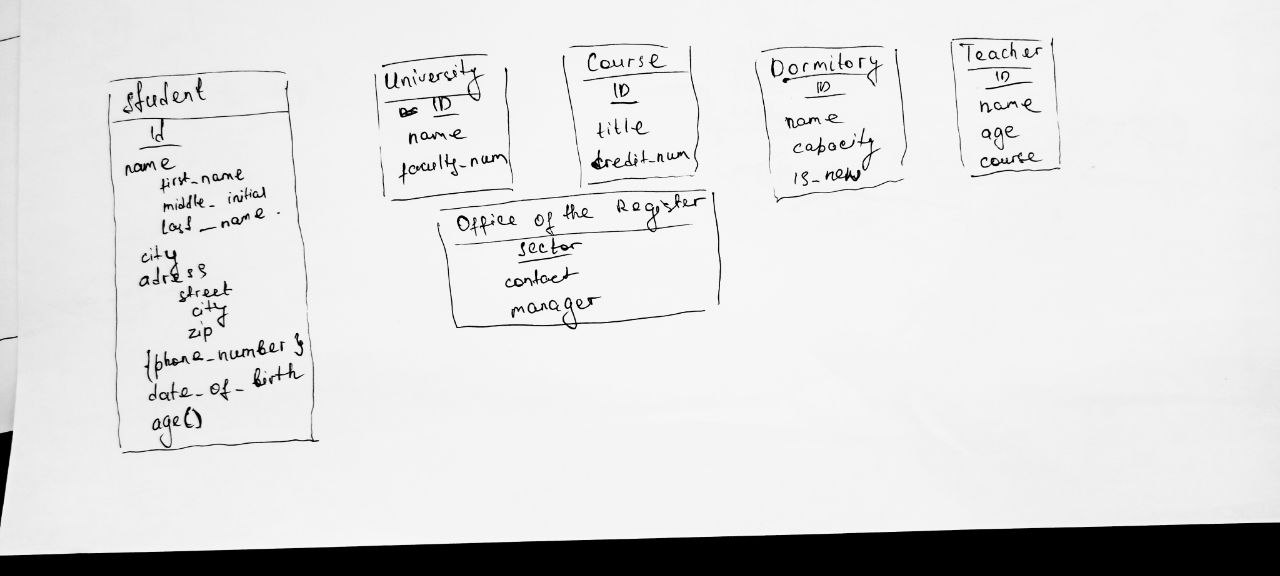 Student
Id
name
first_name
middle_initial
last_name.
city
adress
street
city
zip
{phone_number}
date_of_birth
age()
University
ID
name
faculty_num
Course
ID
title
credit_num
Dormitory
ID
name
capacity
is_new
Teacher
ID
name
age
course
Office of the Register
sector
contact
manager